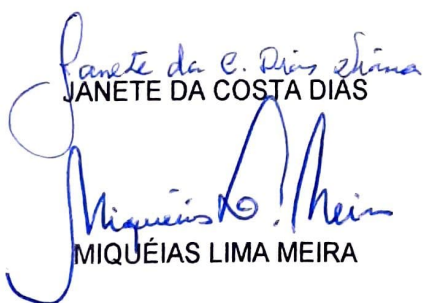 Janete da C. Dias
JANETE DA COSTA DIAS
Miquéias L. Meira
MIQUÉIAS LIMA MEIRA